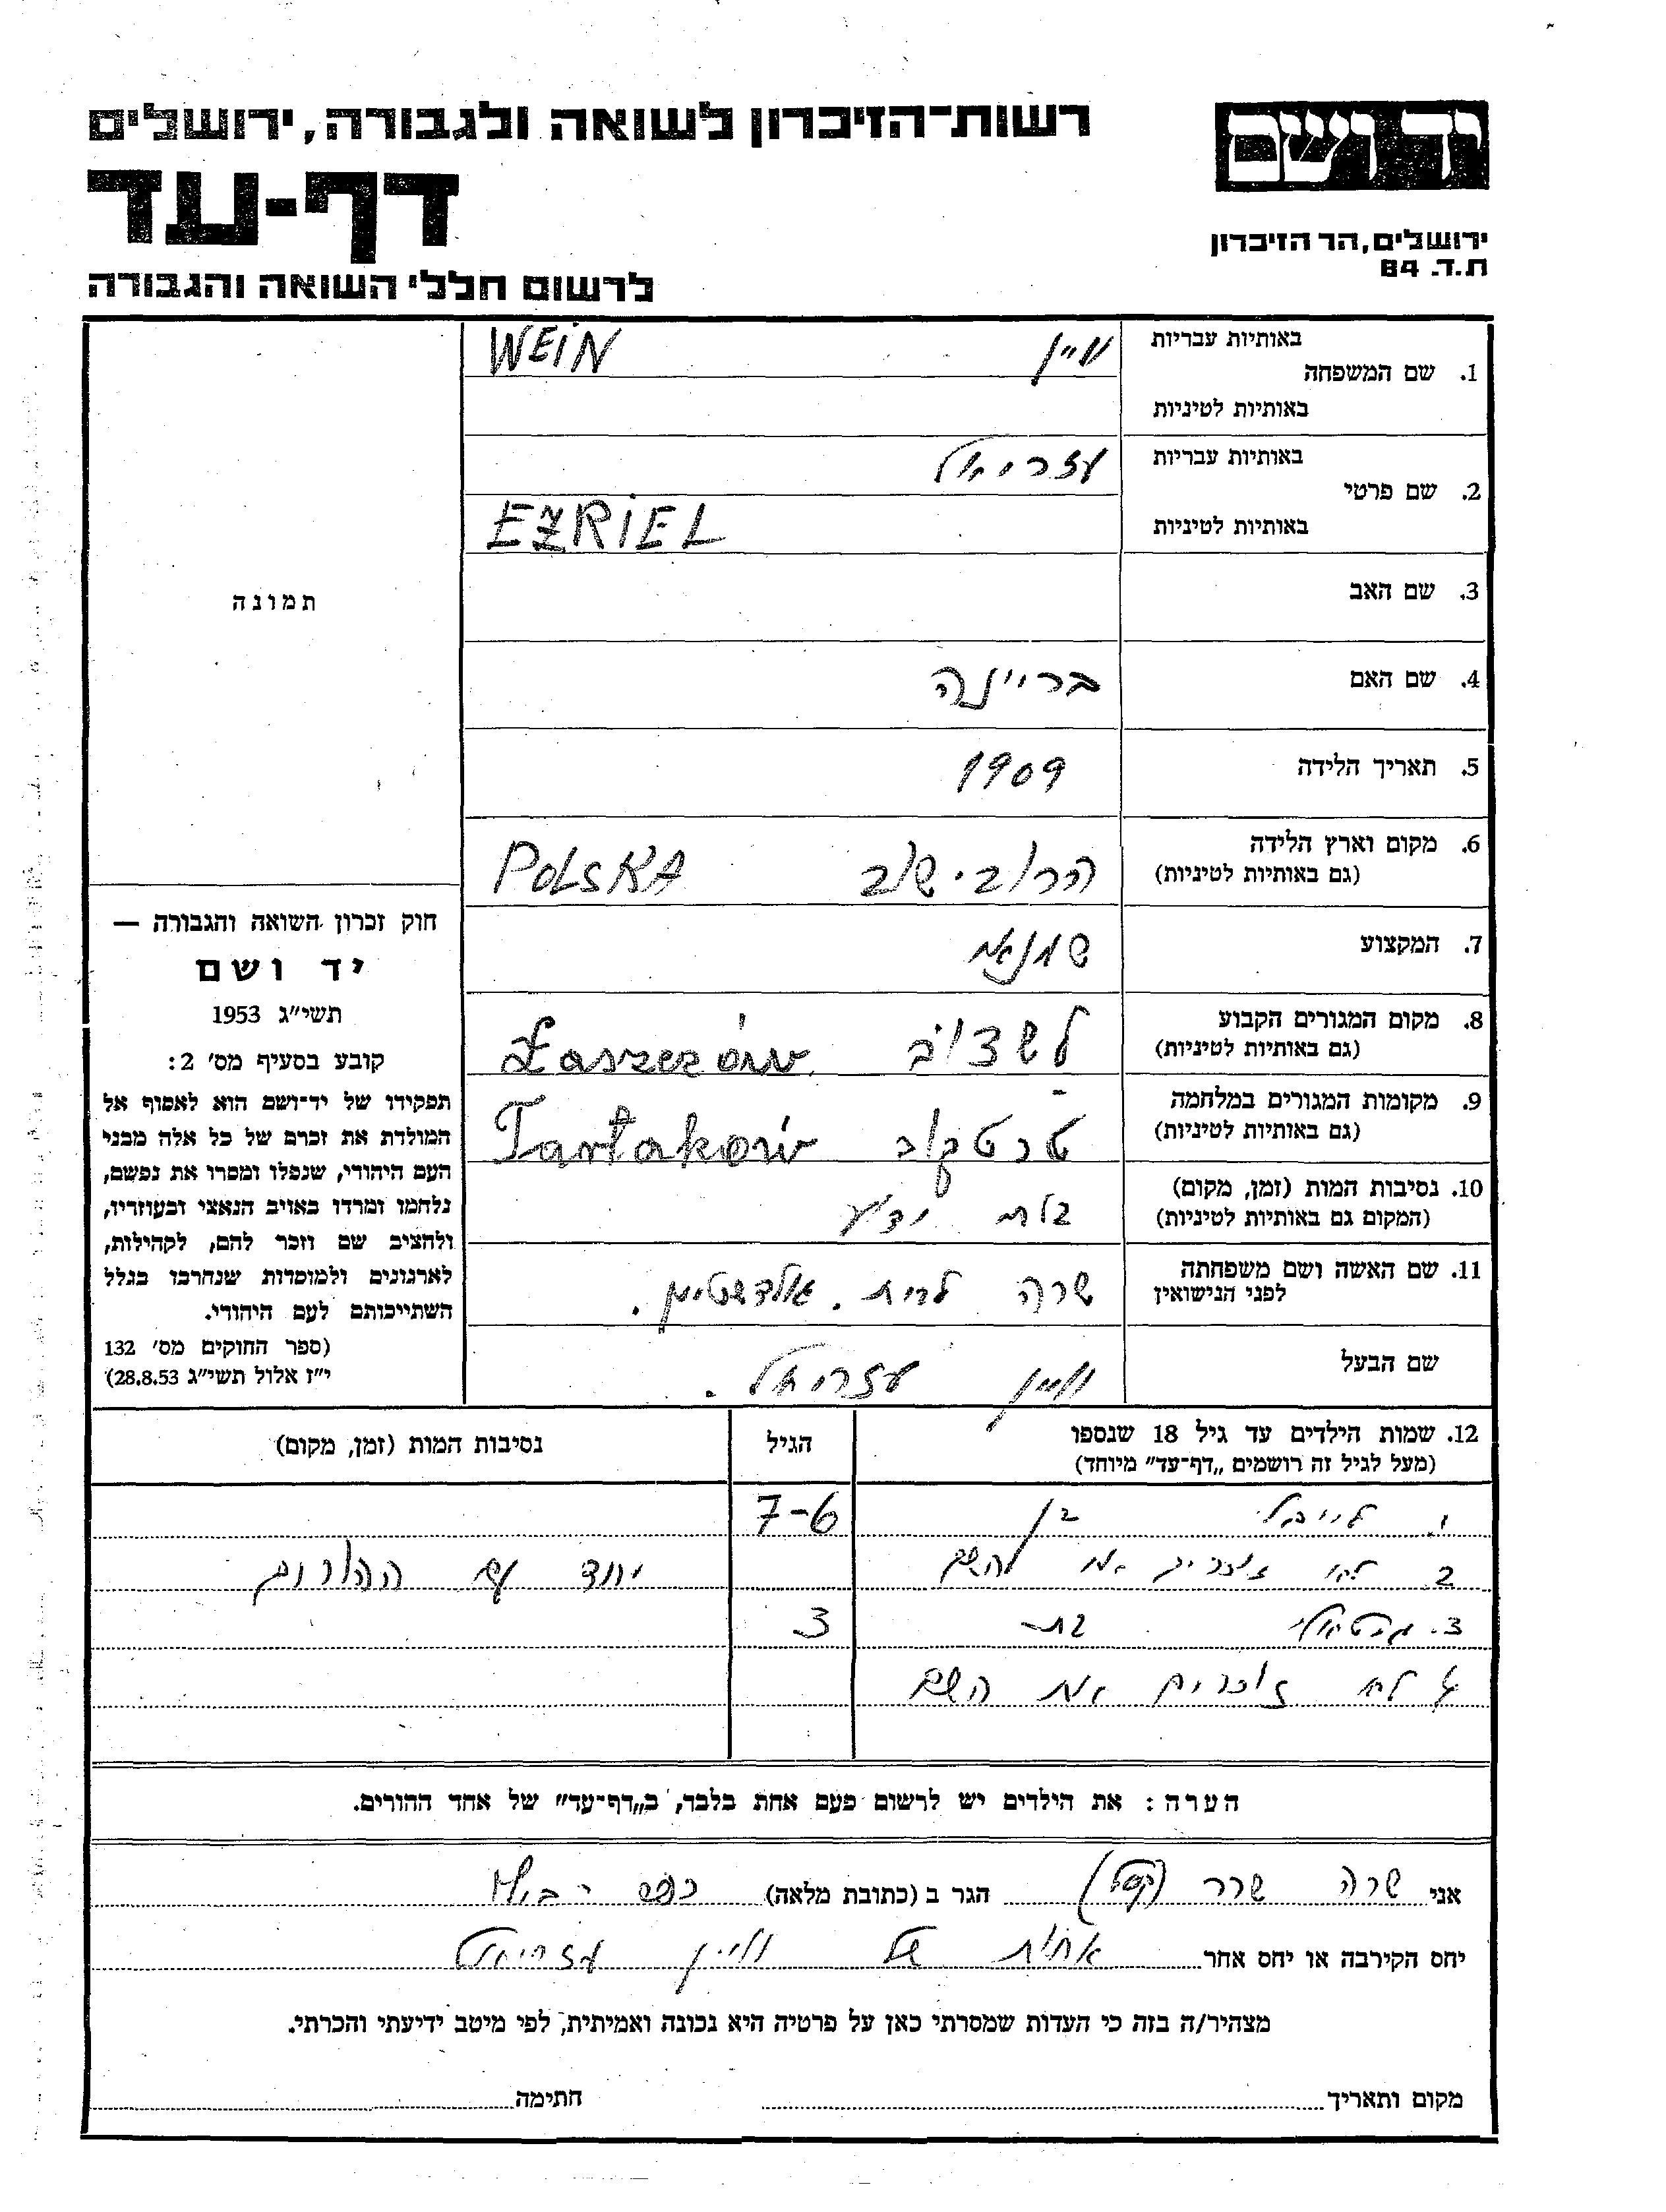 רשות-הזיכרון לשואה ולגבורה, ירושלים
יד ושם
דף-עד
ירושלים, הר הזיכרון
ת.ד. 84
לרשום חללי השואה והגבורה
באותיות עבריות
1. שם המשפחה
באותיות לטיניות
וויין WEIN
באותיות עבריות
2. שם פרטי
באותיות לטיניות
עזריאל
EZRIEL
3. שם האב
4. שם האם
בריינה
5. תאריך הלידה
1909
6. מקום וארץ הלידה
(גם באותיות לטיניות)
הרובישוב POLSKA
7. המקצוע
8. מקום המגורים הקבוע
(גם באותיות לטיניות)
לשצוב Łaszczów
9. מקומות המגורים במלחמה
(גם באותיות לטיניות)
טרטקוב Tartaków
10. נסיבות המות (זמן, מקום)
(המקום גם באותיות לטיניות)
11. שם האשה ושם משפחתה
לפני הנישואין
שרה לבית
שם הבעל
וויין עזריאל.
תמונה
חוק זכרון השואה והגבורה —
יד ושם
תשי״ג 1953
קובע בסעיף מס׳ 2:
תפקידו של יד-ושם הוא לאסוף אל
המולדת את זכרם של כל אלה מבני
העם היהודי, שנפלו ומסרו את נפשם,
נלחמו ומרדו באויב הנאצי ובעוזריו,
ולהציב שם וזכר להם, לקהילות,
לארגונים ולמוסדות שנחרבו בגלל
השתייכותם לעם היהודי.
(ספר החוקים מס׳ 132
י״ז אלול תשי״ג 28.8.53)
12. שמות הילדים עד גיל 18 שנספו
(מעל לגיל זה רושמים „דף-עד״ מיוחד)
הגיל
נסיבות המות (זמן, מקום)
1. לייבלי בן 7-6
2. לא זוכרים את השם יחד עם ההורים
3. בת 3
4 לא זוכרים את השם
הערה: את הילדים יש לרשום פעם אחת בלבד, ב„דף-עד״ של אחד ההורים.
אני שרה שרר הגר ב (כתובת מלאה)
יחס הקירבה או יחס אחר אחות של וויין עזריאל
מצהיר/ה בזה כי העדות שמסרתי כאן על פרטיה היא נכונה ואמיתית, לפי מיטב ידיעתי והכרתי.
מקום ותאריך חתימה